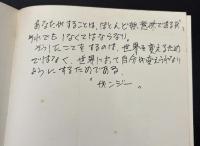 あなたがすることは、ほとんど無意味であるが、
それでもしなくてはならない。
そうしたことをするのは、世界を変えるため
ではなく、世界によって自分が変えられない
ようにするためである。
"ガンジー"